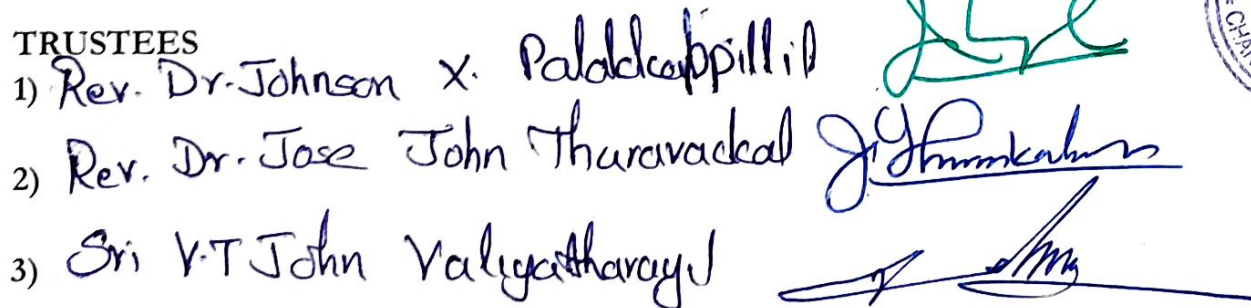 TRUSTEES
1) Rev. Dr. Johnson X. Palackappillil
2) Rev. Dr. Jose John Tharavackal
3) Sri V.T John Valiyatharayil